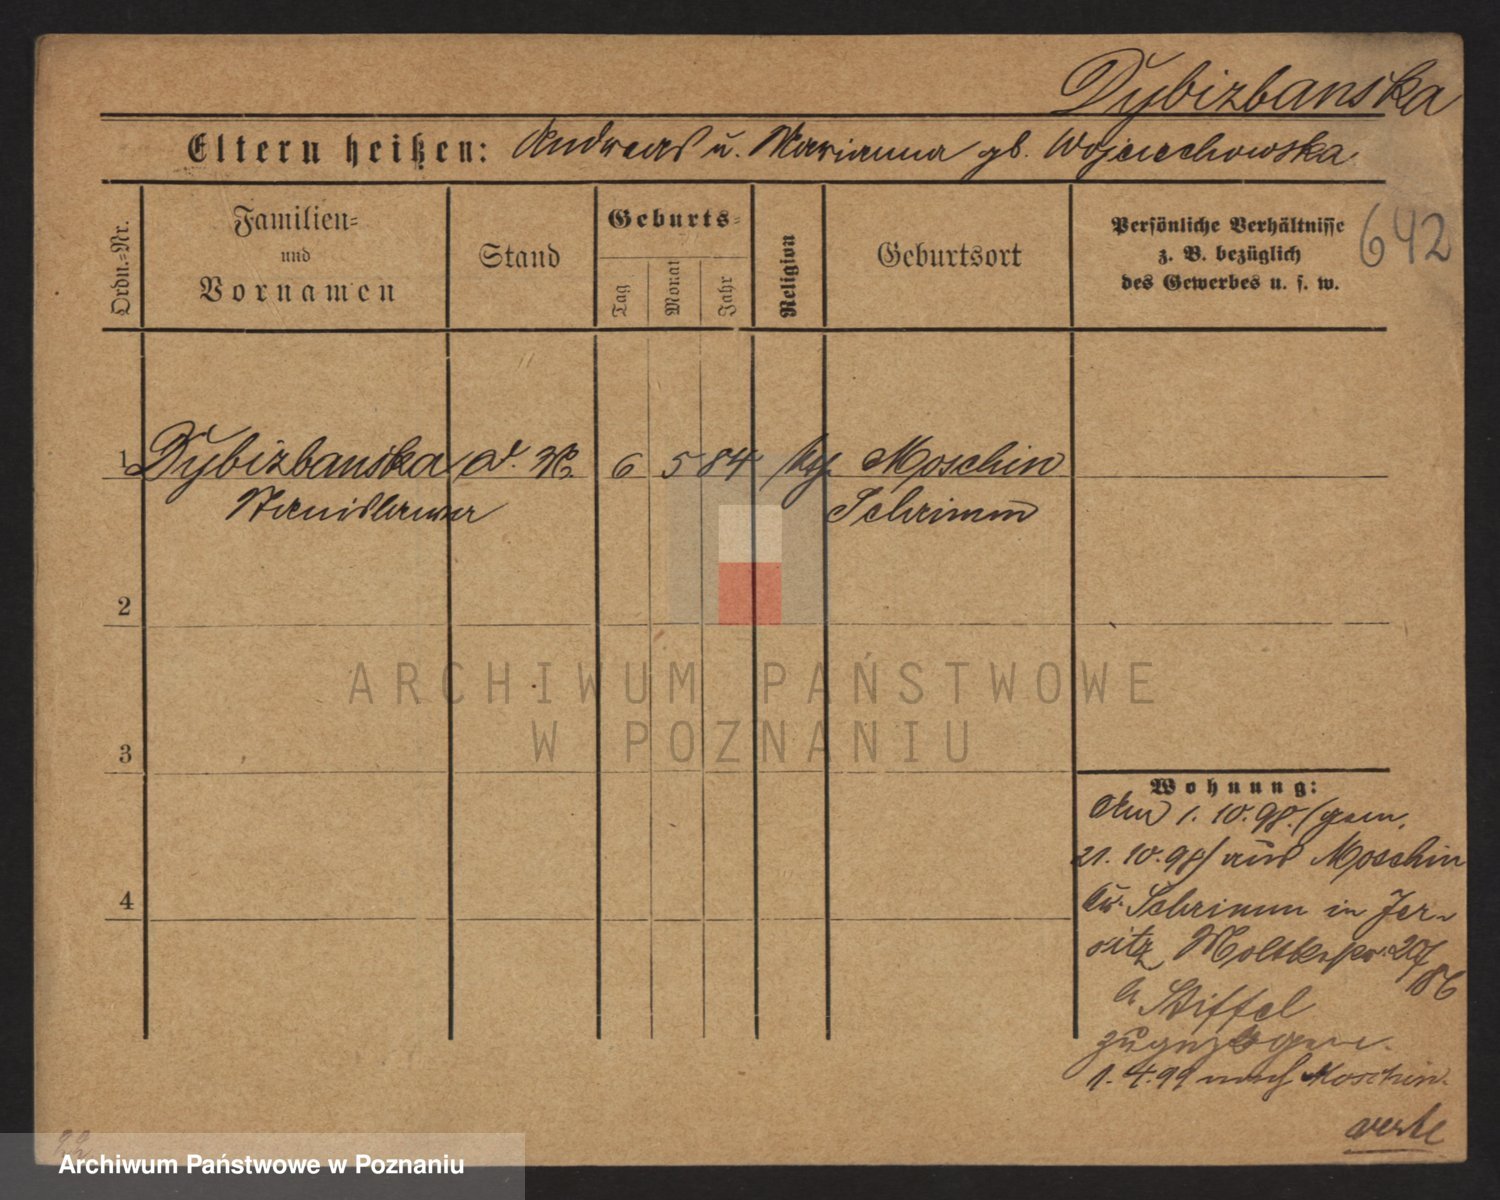 Dybizbanska
Eltern heißen: Andreas u. Marianna gb. Wojciechowska
Ordn.=Nr.
Familien=
und
Vornamen
Stand
Geburts=
Tag
Monat
Jahr
Religion
Geburtsort
Persönliche Verhältnisse
z. B. bezüglich
des Gewerbes u. s. w.
642
1 Dybizbanska 6 5 84 Moschin
Stanislawa Schrimm
2
3
4
ARCHIWUM PAŃSTWOWE
W POZNANIU
Wohnung:
Am 1. 10. 98. (gem.
21. 10. 98) aus Moschin
Kr. Schrimm in Jer-
sitz
Stiffel
zugezogen.
1. 4. 99 nach Moschin.
Archiwum Państwowe w Poznaniu